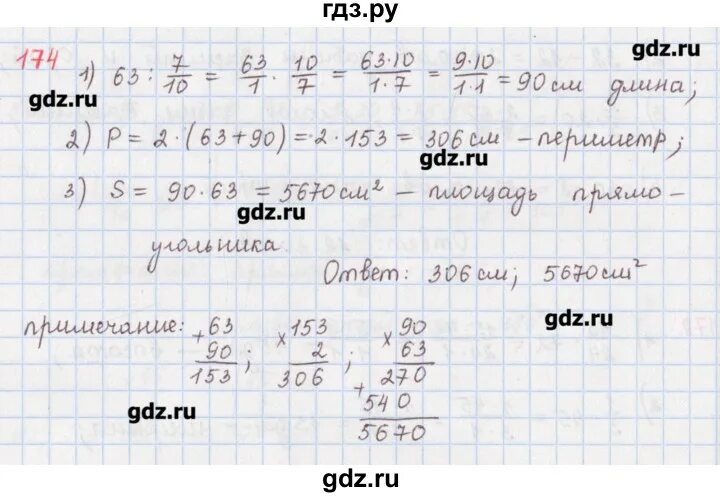 гдз.ру
174
1) 63 : 7/10 = 63/1 · 10/7 = 63·10/1·7 = 9·10/1·1 = 90 см длина;
gdz.ru
gdz.ru
2) P = 2·(63+90) = 2·153 = 306 см – периметр;
gdz.ru
3) S = 90·63 = 5670 см² – площадь прямо-
gdz.ru
угольника.
Ответ: 306 см; 5670 см²
gdz.ru
примечание: + 63 90 153 ; × 153 2 306 ; × 90 63 270
+ 540
5670
gdz.ru
gdz.ru
gdz.ru